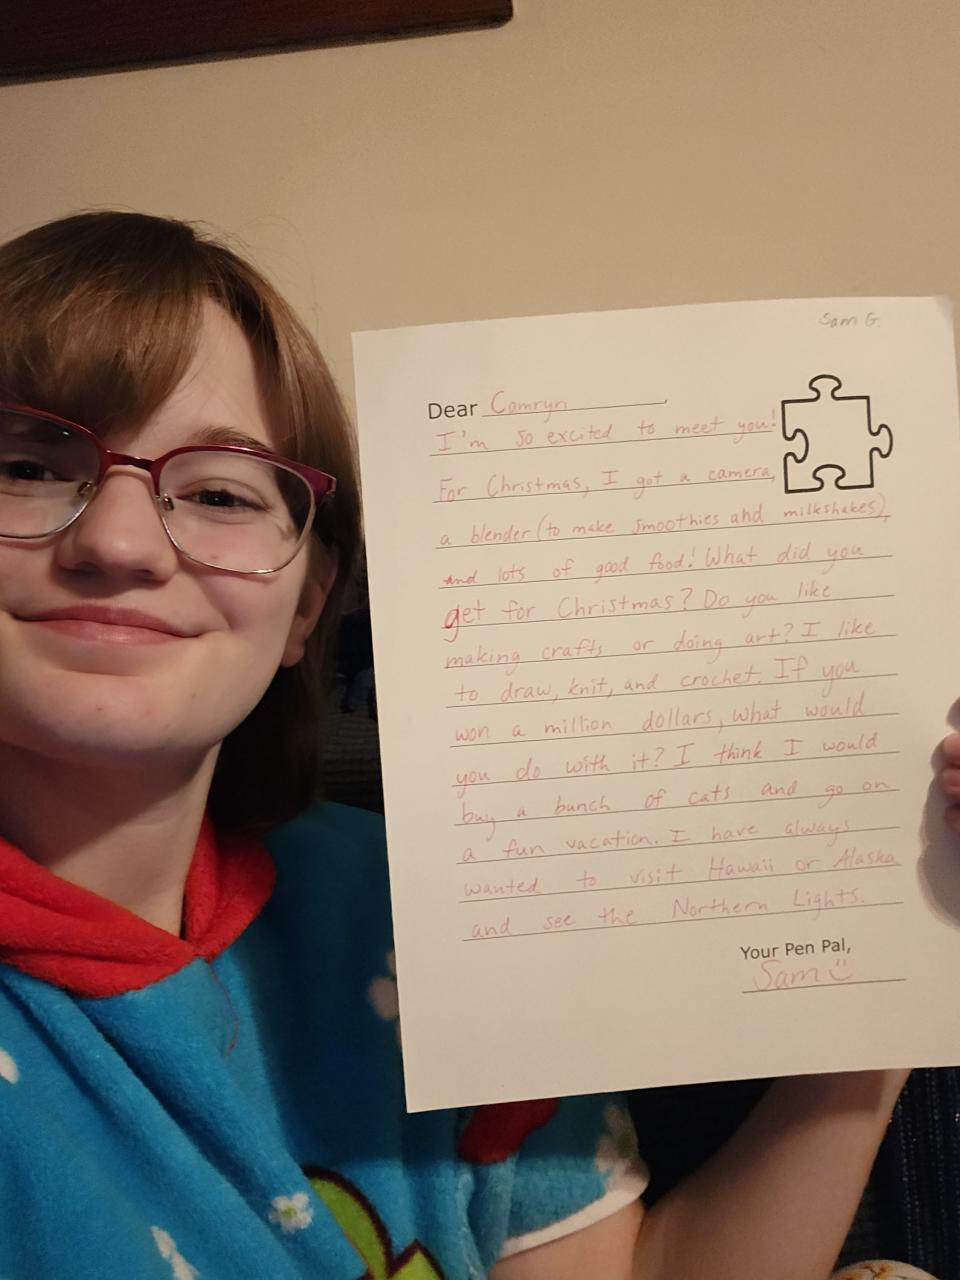 Sam G.
Dear Camryn
I'm so excited to meet you!
For Christmas, I got a camera,
a blender (to make smoothies and milkshakes),
and lots of good food! What did you
get for Christmas? Do you like
making crafts or doing art? I like
to draw, knit, and crochet. If you
won a million dollars, what would
you do with it? I think I would
buy a bunch of cats and go on
a fun vacation. I have always
wanted to visit Hawaii or Alaska
and see the Northern Lights.
Your Pen Pal,
Sam